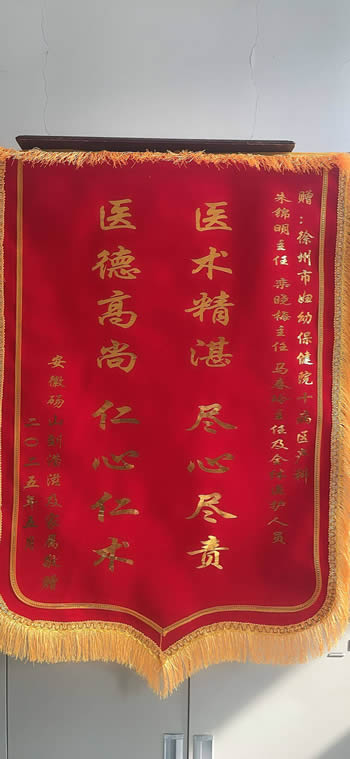 赠：徐州市妇幼保健院十病区产科
朱锦明主任 李晓梅主任 马春玲主任及全体医护人员
医术精湛 尽心尽责
医德高尚 仁心仁术
安徽砀山刘 及家属敬赠
二〇二五年